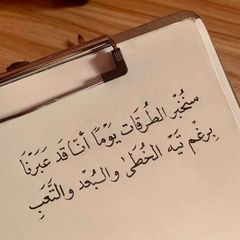 سنُخبر الطُرقات يَومًا أننا قد عَبَرنَا
بِرغم تَيه الخُطىٰ والبُعد والتَّعَبِ